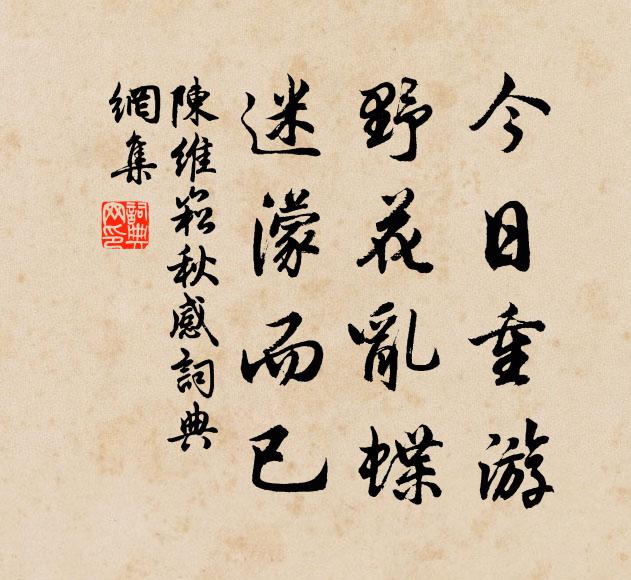 今日重游
野花亂蝶
迷濛而已
陳維崧秋感詞典
網集
詞典
网印